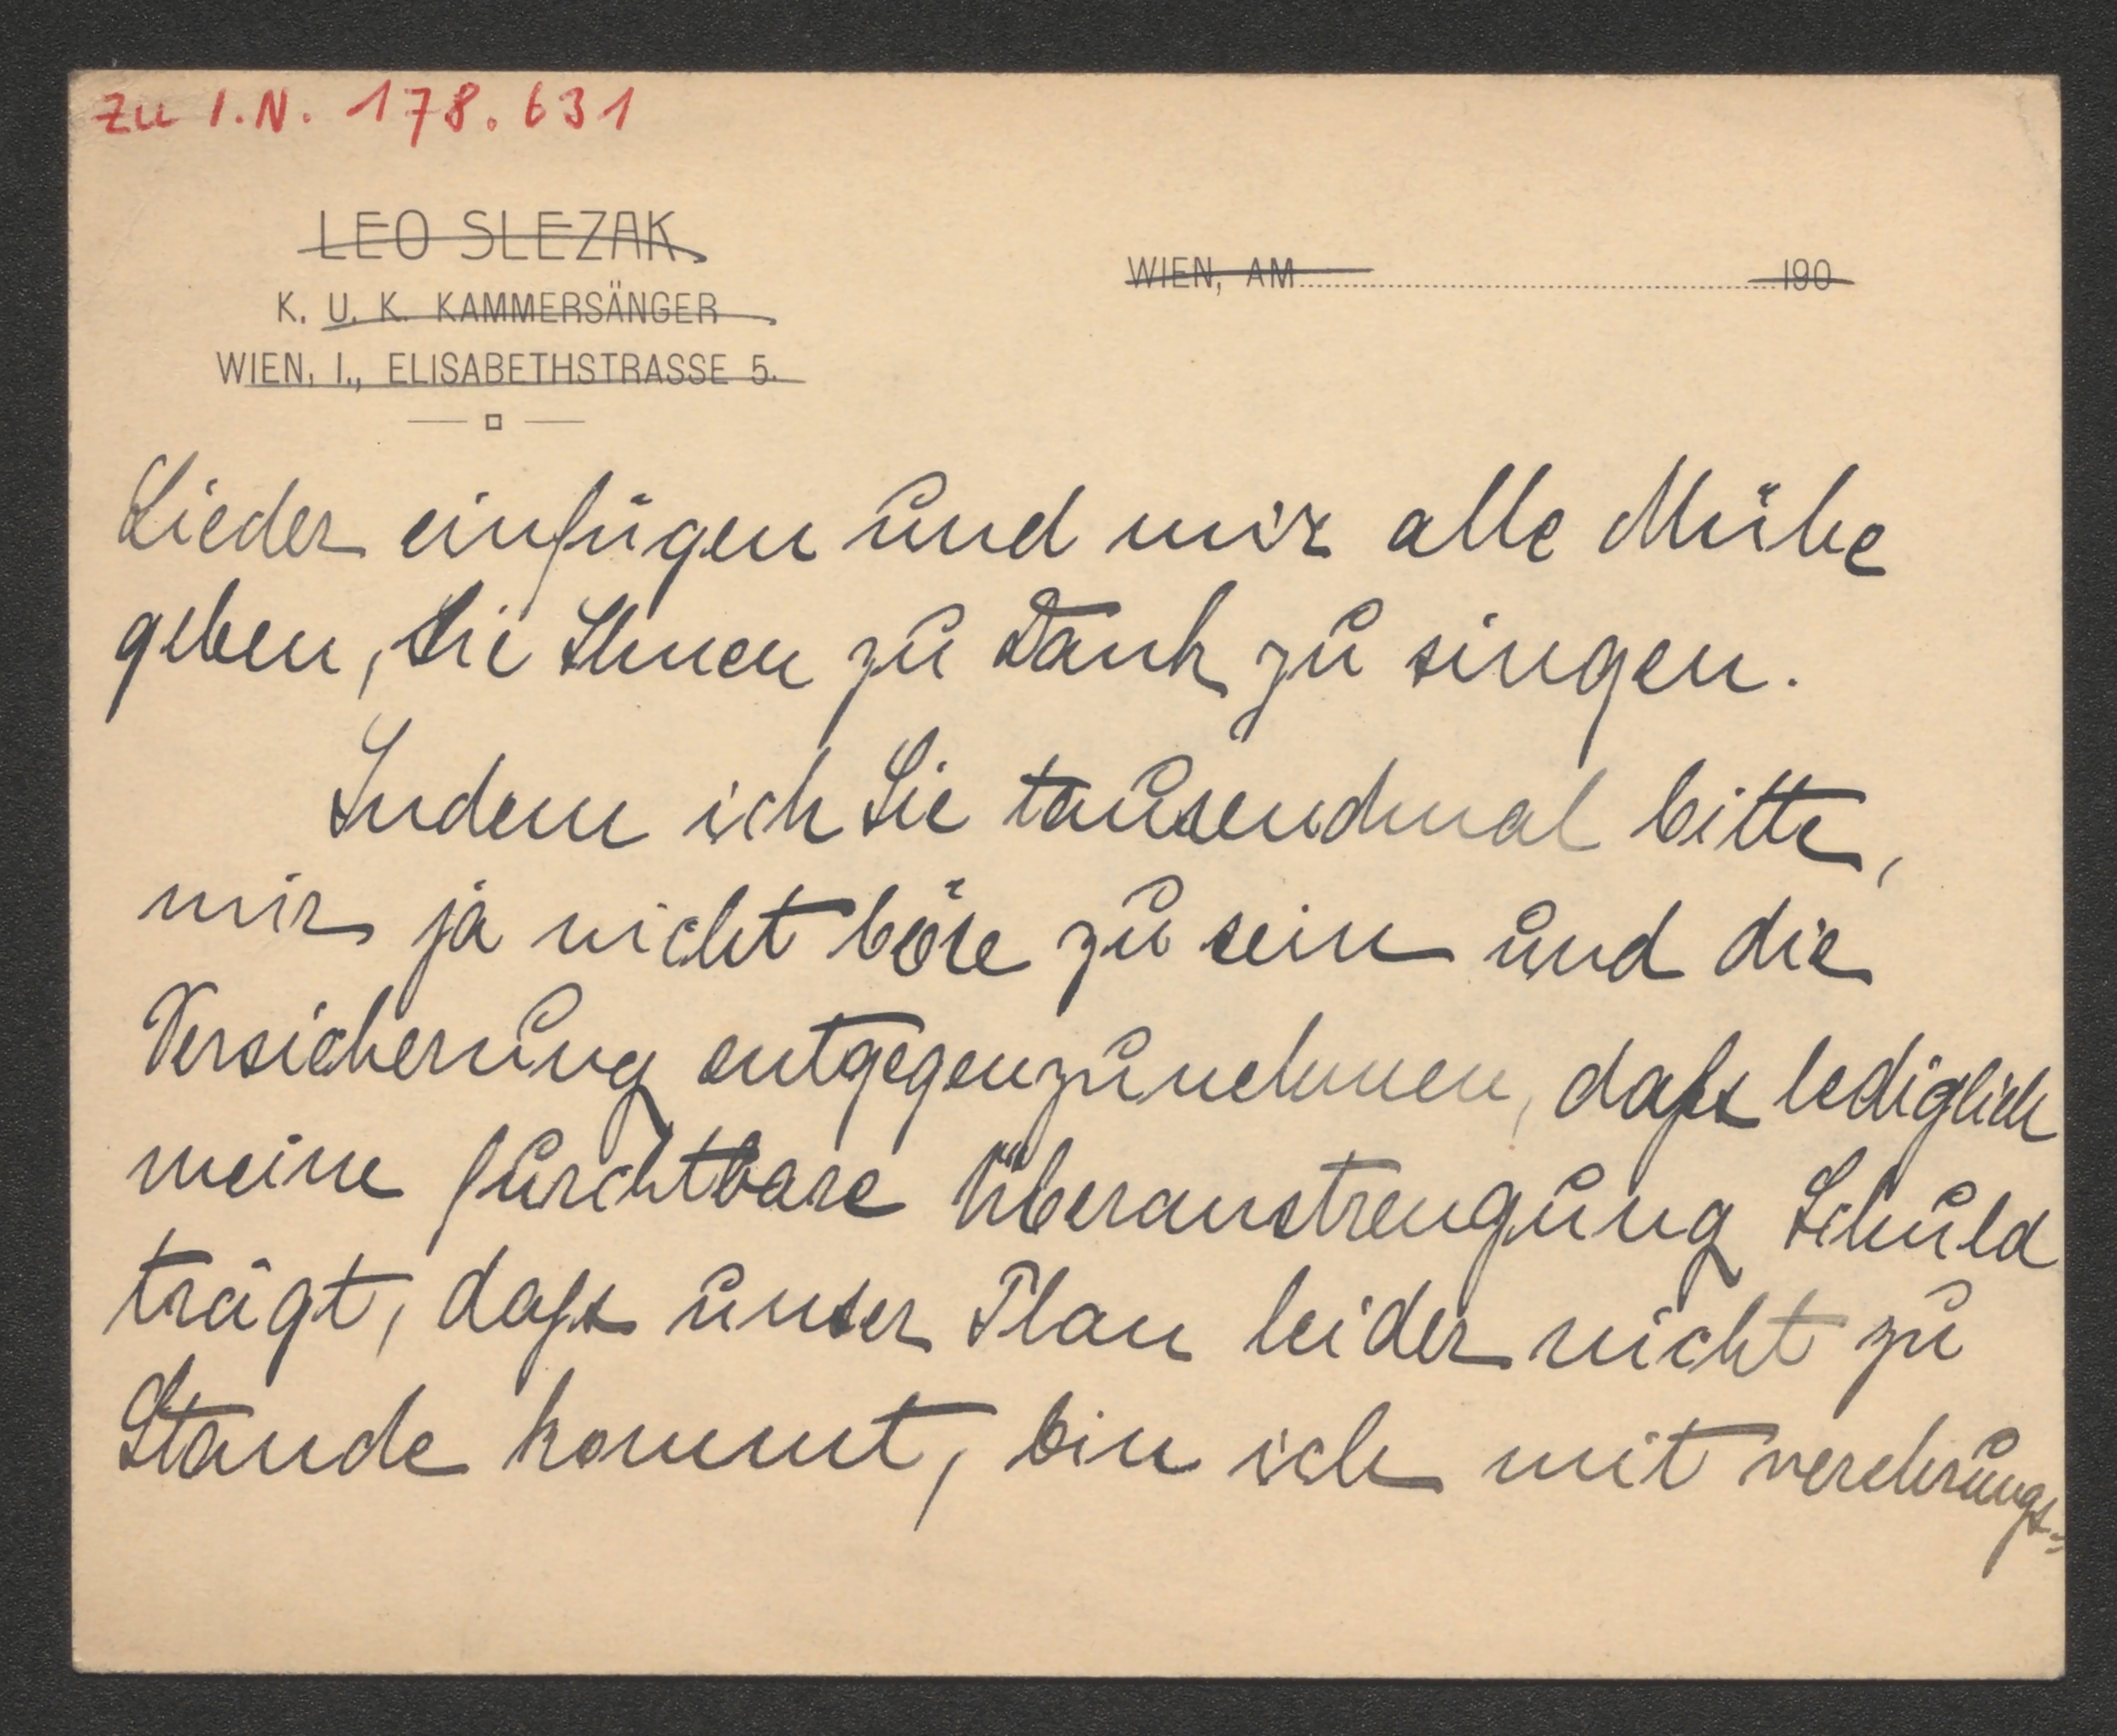 zu I.N. 178.631
LEO SLEZAK
K. U. K. KAMMERSÄNGER
WIEN, I., ELISABETHSTRASSE 5.
WIEN, AM 190
Lieder einfügen und mir alle Mühe
geben, sie Ihnen zu Dank zu singen.
Indem ich Sie tausendmal bitte,
mir ja nicht böse zu sein und die
Versicherung entgegenzunehmen, dafs lediglich
meine furchtbare Überanstrengung Schuld
trägt, dafs unser Plan leider nicht zu
Stande kommt, bin ich mit verehrungs-